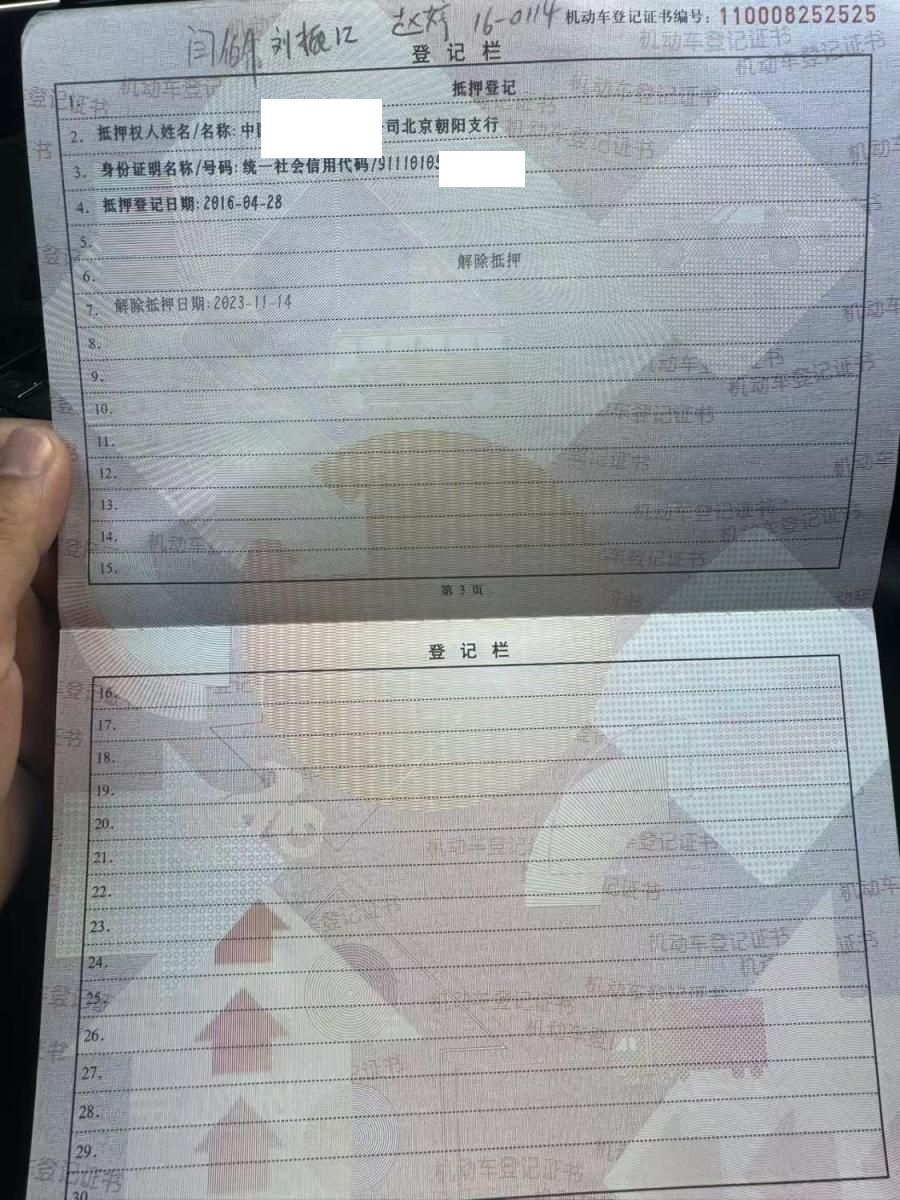 刘振江 赵婷 16-0114 机动车登记证书编号：110008252525
登记栏
1. 抵押登记
2. 抵押权人姓名/名称:中 司北京朝阳支行
3. 身份证明名称/号码:统一社会信用代码/91110105
4. 抵押登记日期:2016-04-28
5.
6. 解除抵押
7. 解除抵押日期:2023-11-14
8.
9.
10.
11.
12.
13.
14.
15.
第 3 页
登记栏
16.
17.
18.
19.
20.
21.
22.
23.
24.
25.
26.
27.
28.
29.
30.